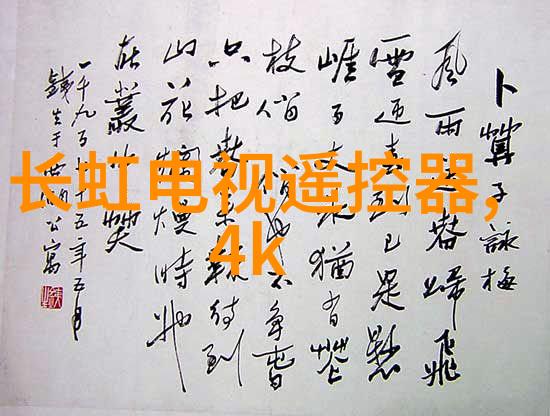 卜算子詠梅
風雨送春歸飛
雪迎春到已是懸
崖百丈冰猶有花
枝俏俏也不爭春
只把春來報待到
山花爛熳時她
在叢中笑
一千九百十五年五月
于公寓
长虹电视遥控器,
4k